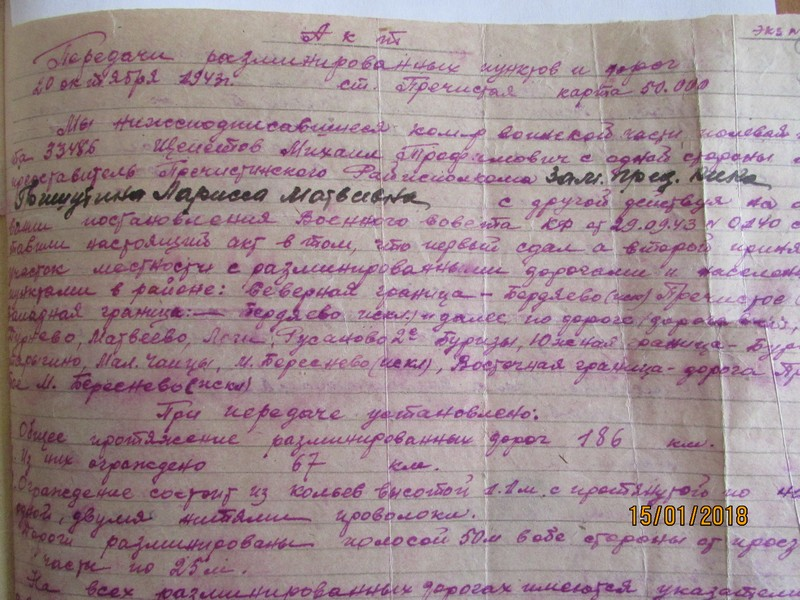 экз
Акт
Передачи разминированных пунктов и дорог
20 октября 1943г. ст. Пречистая карта 50.000
Мы нижеподписавшиеся комдр воинской части, полевая
та 33486 Михаил Трофимович с одной стороны
редставитель Пречистинского Райисполкома Зам. пред. Рика
Лариса Матвеевна с другой действуя на
вании постановления Военного Совета КФ от 29.09.43 N 0240
тавили настоящий акт в том, что первый сдал а второй приня
участок местности с разминированными дорогами и населен
пунктами в районе: Северная граница – Бердяево (иск) Пречистое
Западная граница: – Бердяево искл) и далее по дороге (дорога
Матвеево, Русаново 2е Буризы, Южная раница –
Мал. М. Береснево (искл), Восточная граница – дорога
М. Береснево (искл)
При передаче установлено:
Общее протяжение разминированных дорог 186 км.
Из них ограждено 67 км.
Ограждение состоит из кольев высотой 1.2 м. с протянутого по
одной, двумя нитями проволоки.
Дороги разминированы полосой 50м в обе стороны от
части по 25м.
На всех разминированных дорогах имеются указатели
15/01/2018